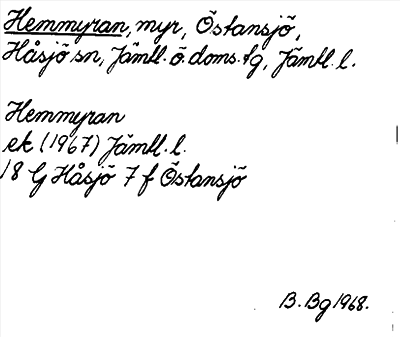 Hemmyran, myr, Östansjö,
Håsjö sn, Jämtl. ö. doms. tg, Jämtl. l.
Hemmyran
ek (1967) Jämtl. l.
18 G Håsjö 7 f Östansjö
B. Bg 1968.